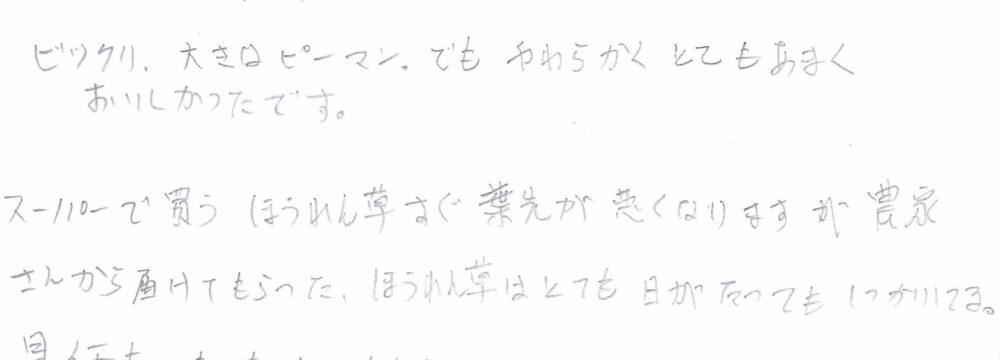 ビックリ、大きなピーマン。でもやわらかくとてもあまく
おいしかったです。
スーパーで買うほうれん草すぐ葉先が悪くなりますが農家
さんから届けてもらった、ほうれん草はとても日がたってもしっかりしてる。